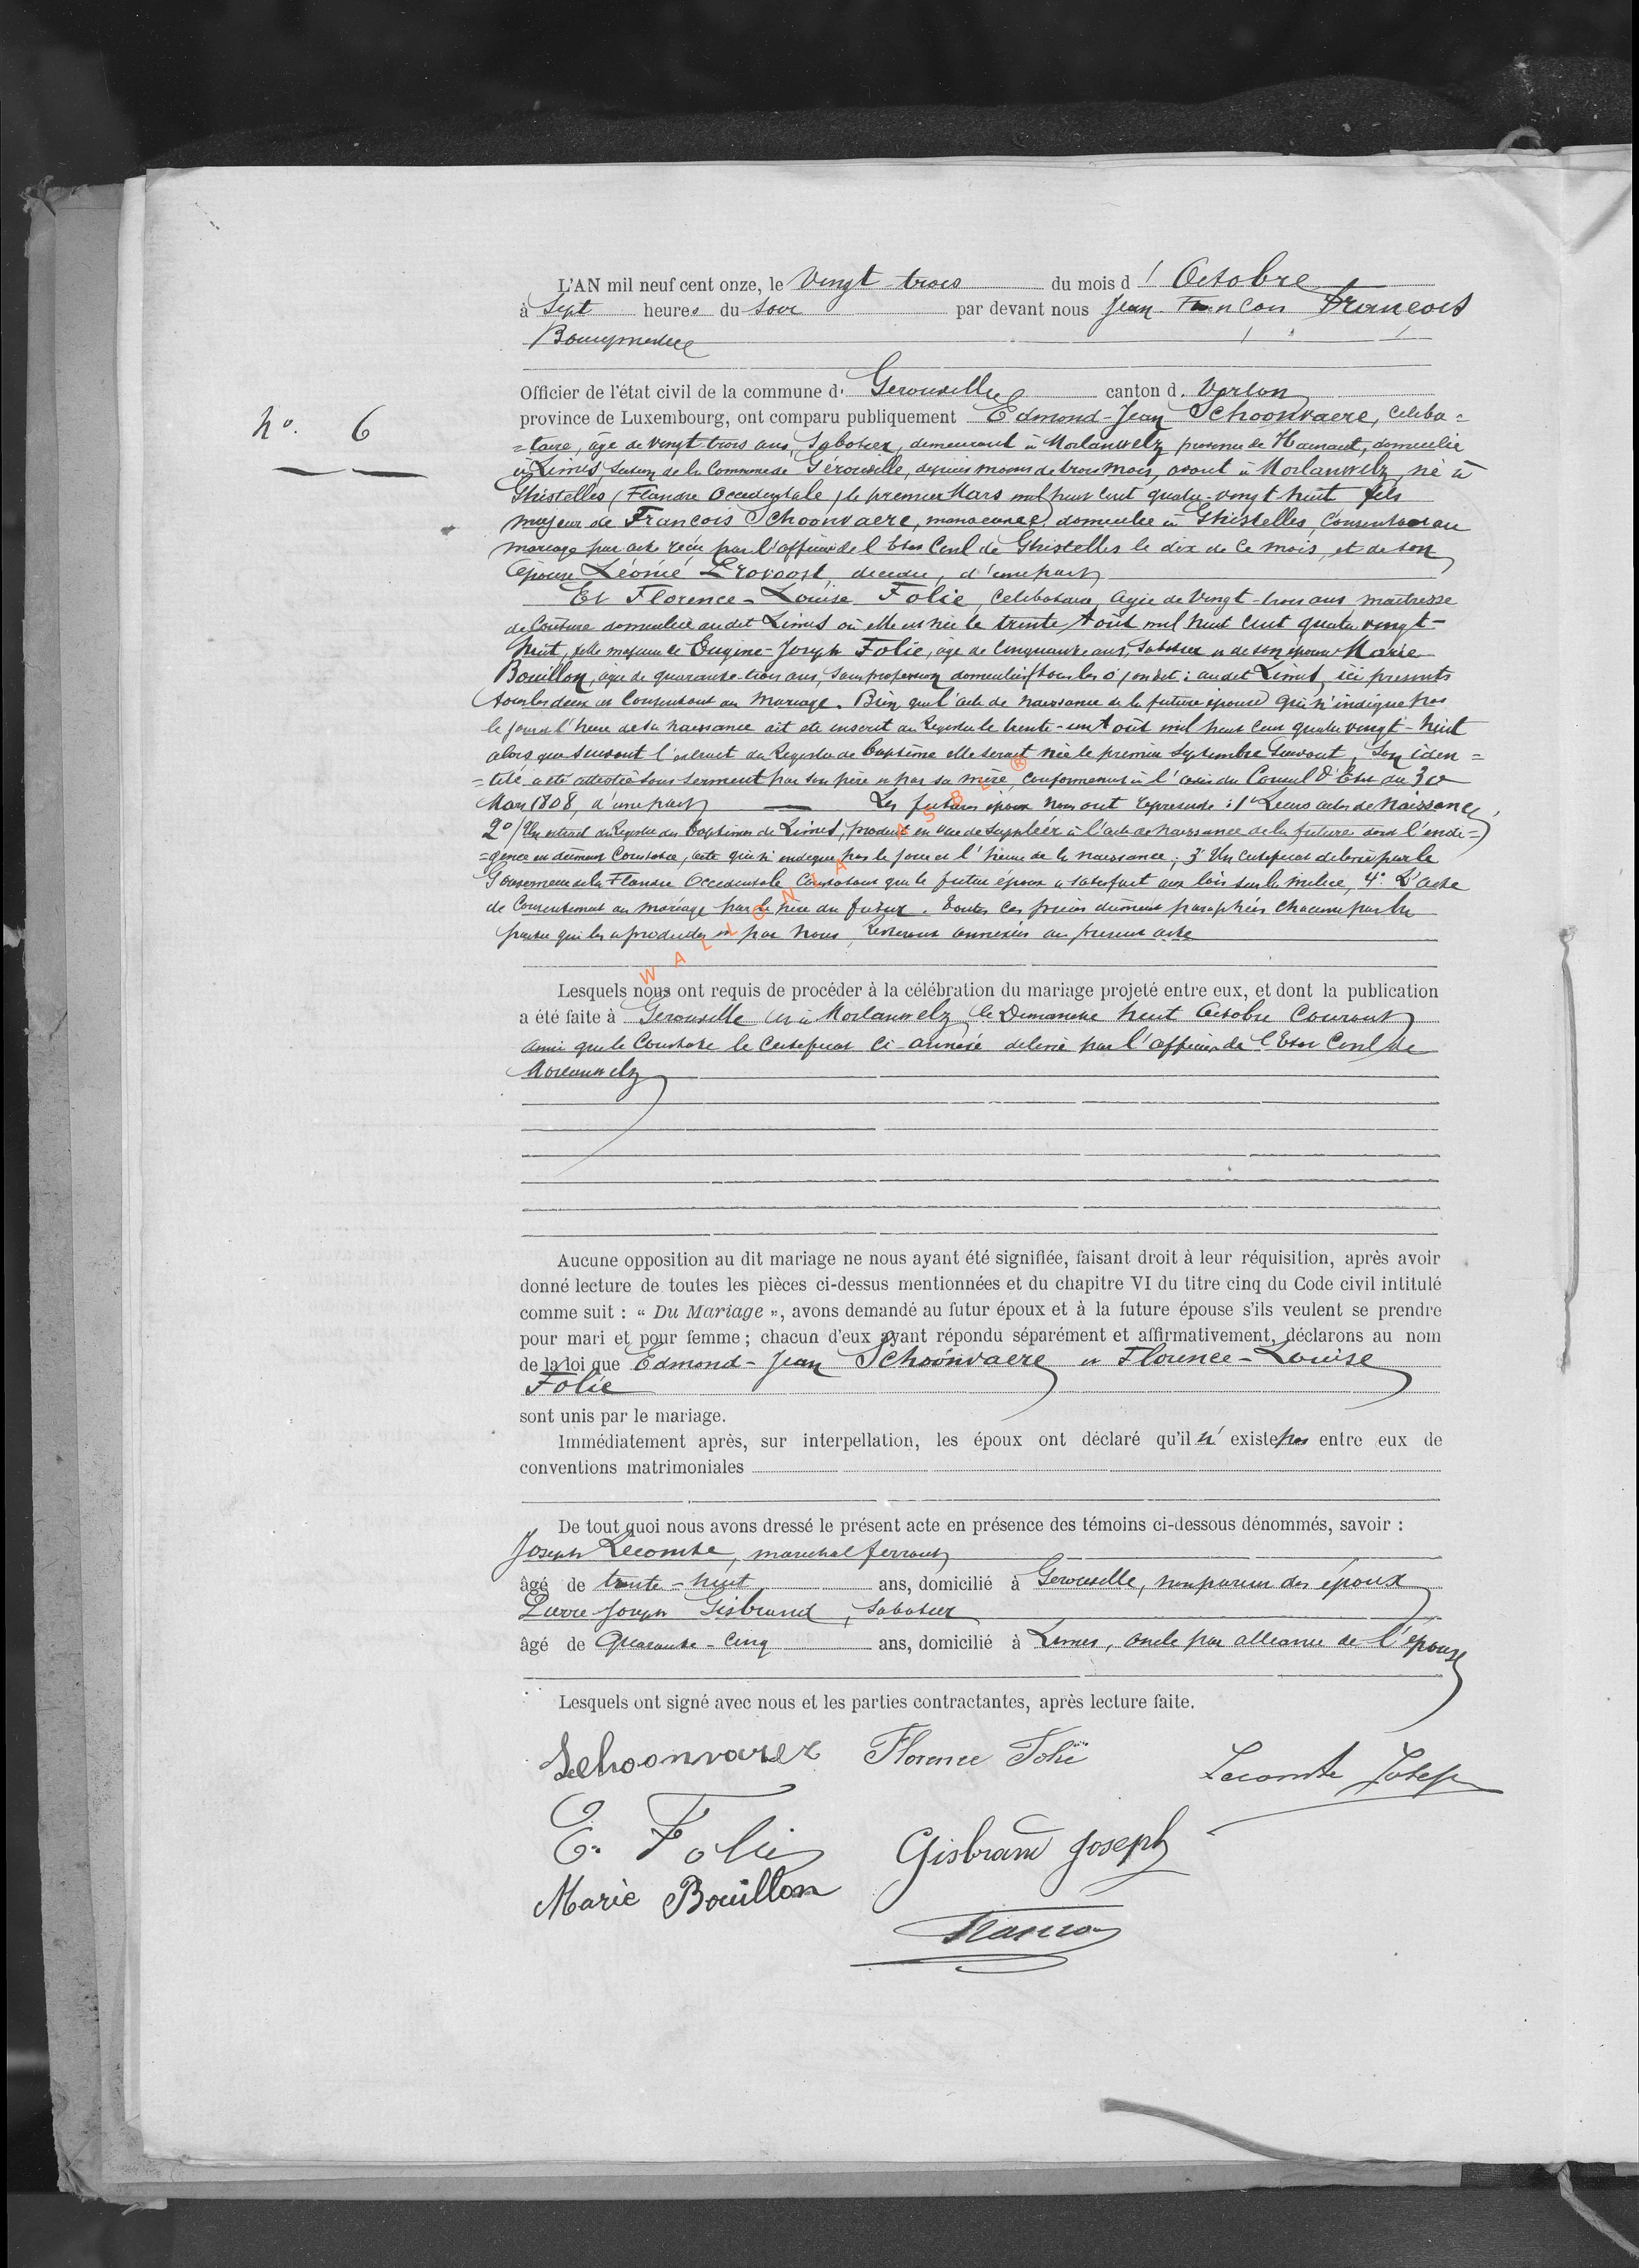 L'AN mil neuf cent onze, le Vingt-trois du mois d' Octobre
à Sept heures du soir par devant nous Jean François
Bourgmestre
Officier de l'état civil de la commune d. Gerouville canton d. Virton
nº. 6
province de Luxembourg, ont comparu publiquement Edmond-Jean Schoonvaere, céliba=
=taire, âgé de vingt trois ans, Sabotier, demeurant à Morlanwelz province de Hainaut, domicilié
à Limes, Section de la Commune de Gérouville, depuis moins de trois mois, avant à Morlanwelz, né à
Ghistelles (Flandre Occidentale) le premier Mars mil huit cent quatre-vingt huit fils
majeur de François Schoonvaere, domicilié à Ghistelles, Consentant au
mariage par acte reçu par l'officier de l'Etat Civil de Ghistelles le dix de ce mois, et de son
épouse Léonie Provoost, décédée, d'une part
Et Florence-Louise Folie, Célibataire âgée de Vingt-trois ans maîtresse
de Couture domiciliée audit Limes où elle est née le trente Août mil huit cent quatre vingt-
huit, fille majeure de Eugène-Joseph Folie, âgé de Cinquante ans, Sabotier et de son épouse Marie
Bouillon, âgée de quarante-trois ans, Sans profession domiciliés audit Limes, ici présents
tous les deux et Consentant au Mariage. Bien que l'acte de naissance de la future épouse qui n'indique pas
le jour et l'heure de sa naissance ait été inscrit au Registre le trente-un Août mil huit cent quatre vingt-huit
alors que suivant l'extrait du Registre de baptême elle serait née le premier Septembre Suivant, Son iden=
=tité a été attestée sous serment par son père et par sa mère, conformément à l'avis du Conseil d'Etat du 30
Mars 1808, d'une part — Les futurs époux Nous ont représenté : 1º Leurs actes de Naissance
2º/ Un extrait du Registre des Baptêmes de Limes, produit en vue de suppléer à l'acte de naissance de la future dont l'indi=
=gence est dûment Constatée, acte qui n'indique pas le jour et l'heure de la naissance ; 3º Un Certificat délivré par le
Gouverneur de la Flandre Occidentale Constatant que le futur époux a satisfait aux lois sur la milice, 4º. L'acte
de Consentement au mariage par le père du futur. Toutes ces pièces dûment paraphées chacune par la
partie qui les a produites et par Nous, resteront annexées au présent acte
WALLONIA ASBL ®
Lesquels nous ont requis de procéder à la célébration du mariage projeté entre eux, et dont la publication
a été faite à Gerouville et à Morlanwelz, le Dimanche huit Octobre Courant
ainsi que le Constate le Certificat Ci-annexé délivré par l'officier de l'Etat Civil de
Morlanwelz
Aucune opposition au dit mariage ne nous ayant été signifiée, faisant droit à leur réquisition, après avoir
donné lecture de toutes les pièces ci-dessus mentionnées et du chapitre VI du titre cinq du Code civil intitulé
comme suit : « Du Mariage », avons demandé au futur époux et à la future épouse s'ils veulent se prendre
pour mari et pour femme ; chacun d'eux ayant répondu séparément et affirmativement, déclarons au nom
de la loi que Edmond-Jean Schoonvaere et Florence-Louise
Folie
sont unis par le mariage.
Immédiatement après, sur interpellation, les époux ont déclaré qu'il n'existe pas entre eux de
conventions matrimoniales
De tout quoi nous avons dressé le présent acte en présence des témoins ci-dessous dénommés, savoir :
Joseph Lecomte, maréchal ferrant
âgé de trente-huit ans, domicilié à Gerouville, non parent des époux
Pierre Joseph Gisbrand, Sabotier
âgé de Quarante-Cinq ans, domicilié à Limes, oncle par alliance de l'épouse
Lesquels ont signé avec nous et les parties contractantes, après lecture faite.
Schoonvaere Florence Folie Lecomte Joseph
E. Folie Gisbrand Joseph
Marie Bouillon
François